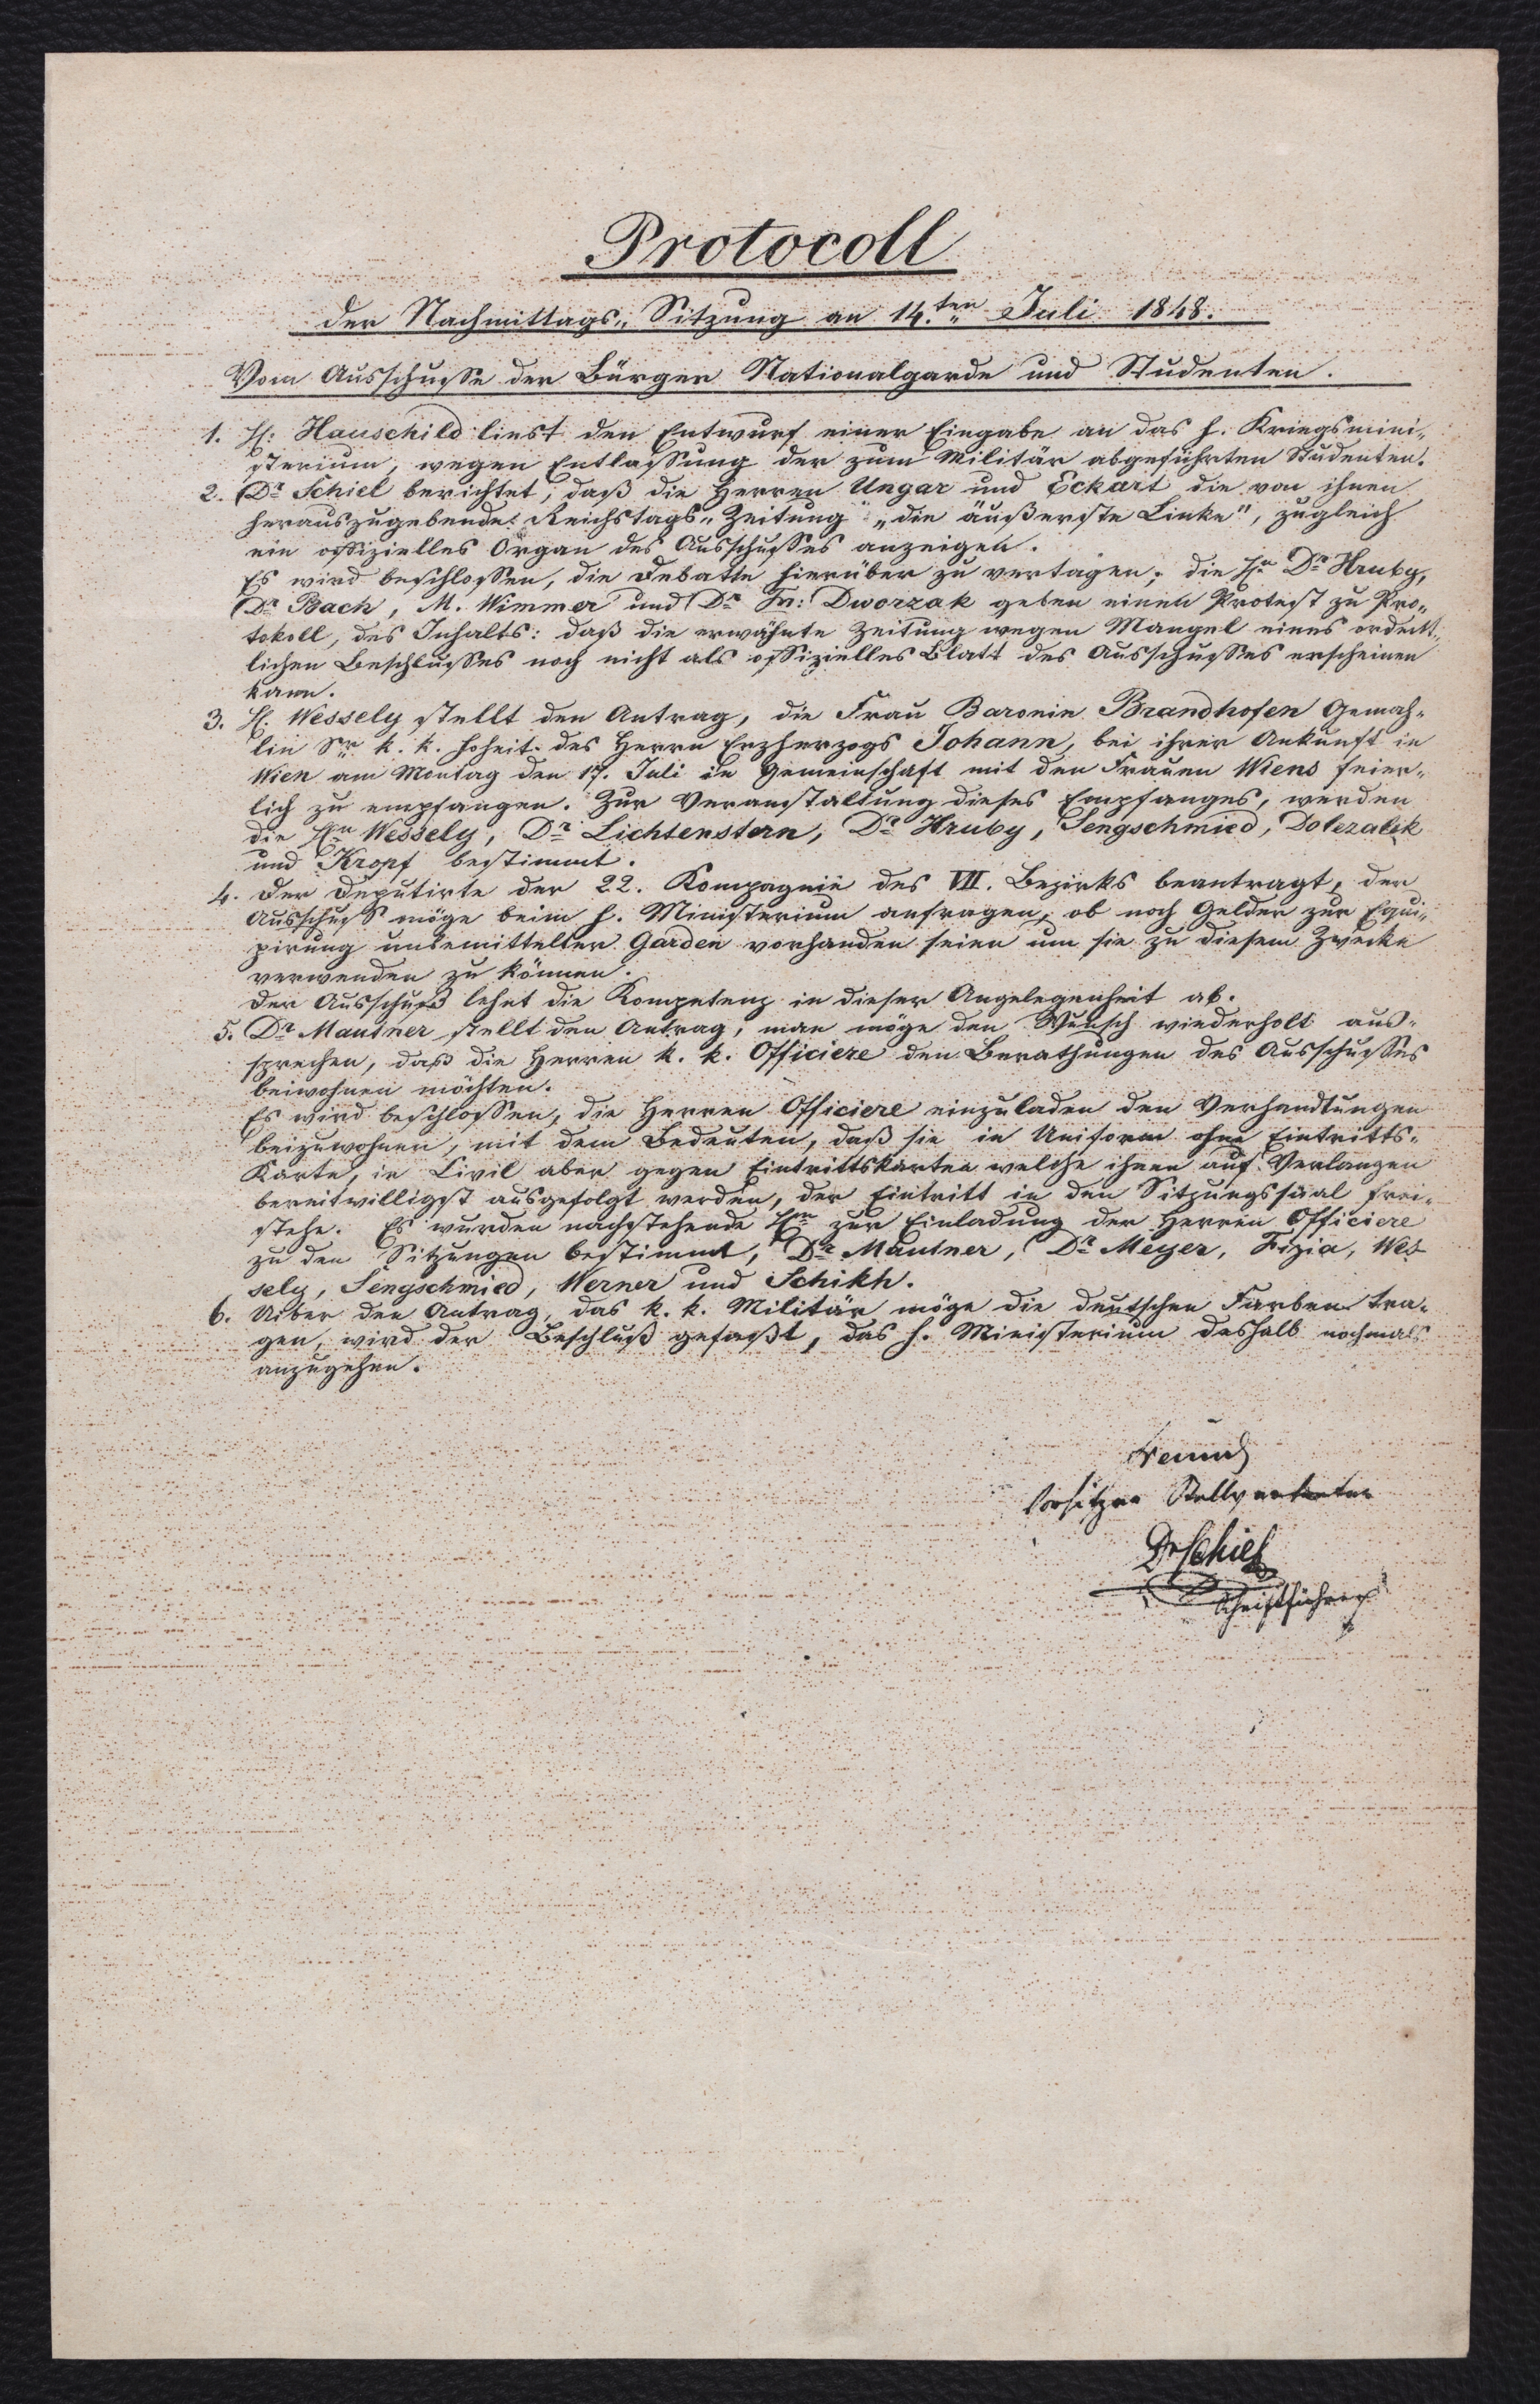 Protocoll
der Nachmittags-Sitzung am 14.ten Juli 1848.
Vom Ausschusse der Bürger Nationalgarde und Studenten.
1. H: Hauschild liest den Entwurf einer Eingabe an das h. Kriegsmini-
sterium, wegen Entlassung der zum Militär abgeführten Studenten.
2. Dr Schiel berichtet, daß die Herren Ungar und Eckart die von ihnen
herauszugebende: Reichstags-Zeitung "die äußerste Linke", zugleich
ein offizielles Organ des Ausschusses anzeigen.
Es wird beschlossen, die Debatte hierüber zu vertagen; die Hn Dr Hruby,
Dr Bach, M. Wimmer und Dr Fr: Dworzak geben einen Protest zu Pro-
tokoll, des Inhalts: daß die erwähnte Zeitung wegen Mangel eines ordent-
lichen Beschlusses noch nicht als offizielles Blatt des Ausschusses erscheinen
kann.
3. H. Wessely stellt den Antrag, die Frau Baronin Brandhofen Gemah-
lin Sr k. k. Hoheit des Herrn Erzherzogs Johann, bei ihrer Ankunft in
Wien am Montag den 17. Juli in Gemeinschaft mit den Frauen Wiens feier-
lich zu empfangen. Zur Veranstaltung dieses Empfanges, werden
die Hn Wessely, Dr Lichtenstern, Dr Hruby, Sengschmied, Dolezalek
und Kropf bestimmt.
4. Der Deputirte der 22. Kompagnie des VII. Bezirks beantragt, der
Ausschuß möge beim h. Ministerium anfragen, ob noch Gelder zur Equi-
pirung unbemittelter Garden vorhanden seien um sie zu diesem Zwecke
verwenden zu können.
Der Ausschuß lehnt die Kompetenz in dieser Angelegenheit ab.
5. Dr Mautner stellt den Antrag, man möge den Wunsch wiederholt aus-
sprechen, daß die Herren k. k. Officiere den Berathungen des Ausschusses
beiwohnen möchten.
Es wird beschlossen, die Herren Officiere einzuladen den Verhandlungen
beizuwohnen, mit dem Bedeuten, daß sie in Uniform ohne Eintritts-
Karte, in Civil aber gegen Eintrittskarten welche ihnen auf Verlangen
bereitwilligst ausgefolgt werden, der Eintritt in den Sitzungssaal frei-
stehe. Es wurden nachstehende Hrn zur Einladung der Herren Officiere
zu den Sitzungen bestimmt, Dr Mautner, Dr Meyer, Fizia, Wes-
sely, Sengschmied, Werner und Schikh.
6. Uiber den Antrag, das k. k. Militär möge die deutschen Farben tra-
gen, wird der Beschluß gefaßt, das h. Ministerium deshalb nochmals
anzugehen.
Freund
Vorsitzer Stellvertreter
Dr Schiel
Schriftführer